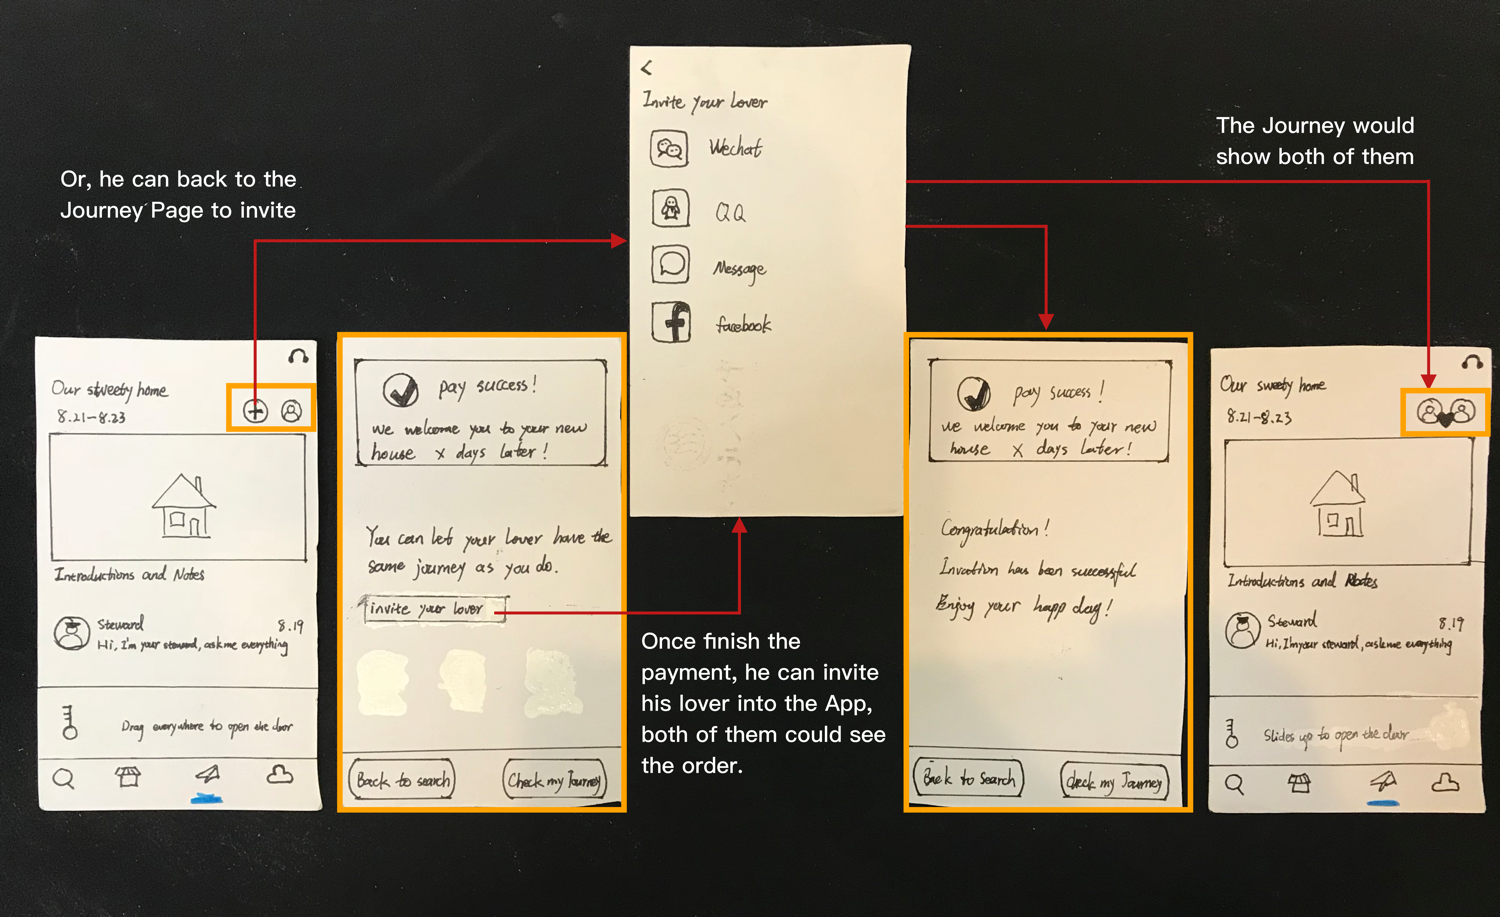 Or, he can back to the
Journey Page to invite
Our sweety home
8.21-8.23
Introductions and Notes
Steward
8.19
Hi, I'm your steward, ask me everything
Drag everywhere to open the door
pay success!
we welcome you to your new
house x days later!
You can let your lover have the
same journey as you do.
invite your lover
Back to search
Check my Journey
Invite your lover
Wechat
QQ
Message
facebook
Once finish the
payment, he can invite
his lover into the App,
both of them could see
the order.
pay success!
we welcome you to your new
house x days later!
Congratulation!
Invation has been successful
Enjoy your happ day!
Back to search
check my Journey
The Journey would
show both of them
Our sweety home
8.21-8.23
Introductions and Notes
Steward
8.19
Hi, I'm your steward, ask me everything
Slides up to open the door